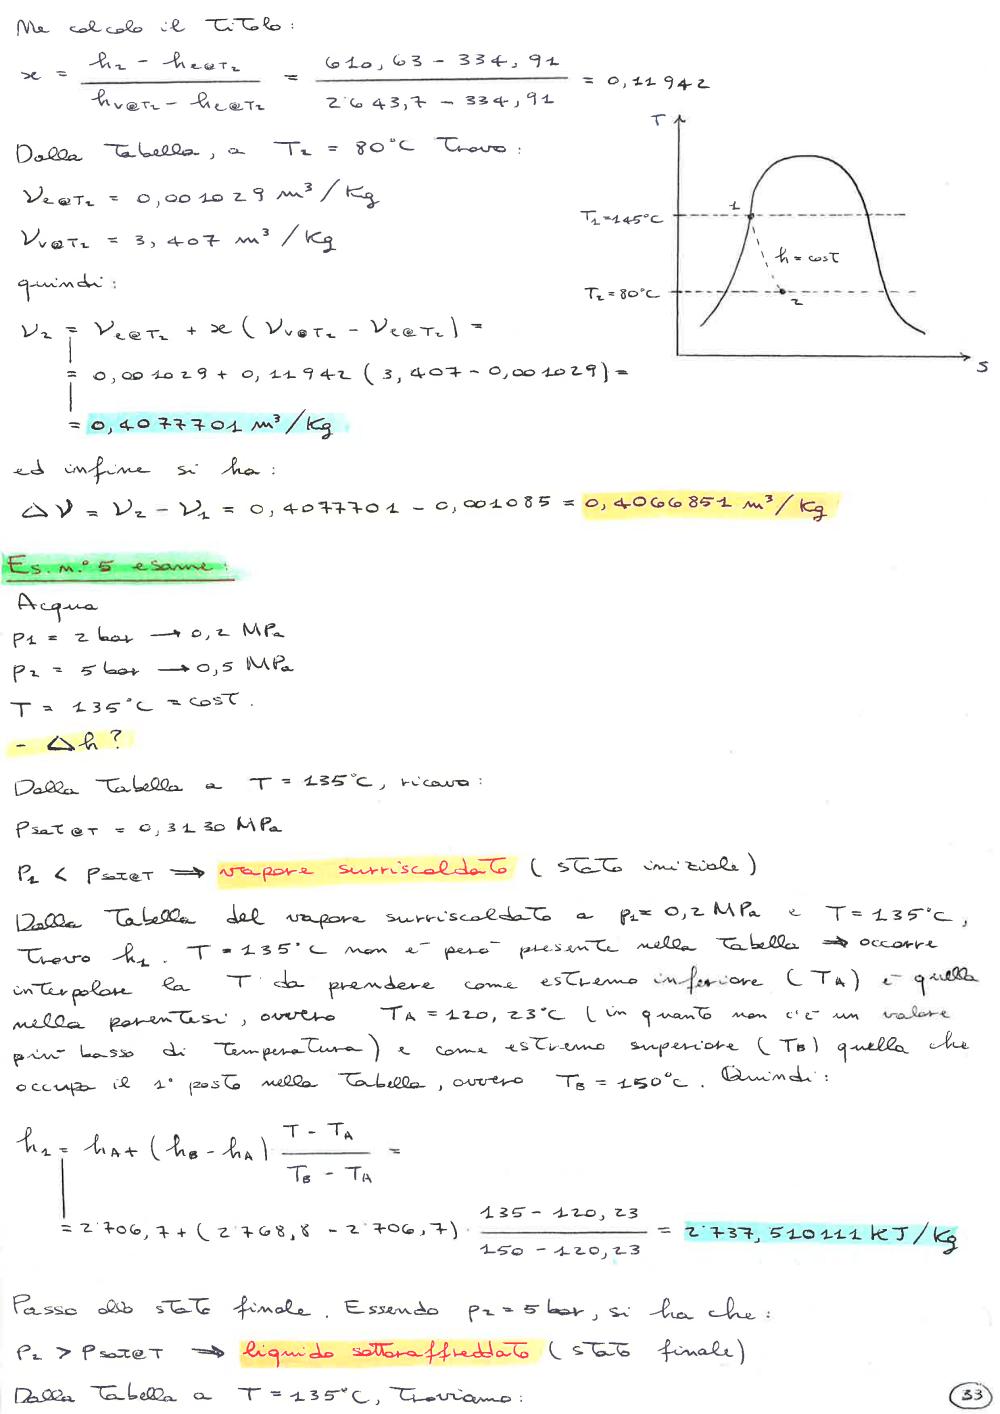 Me calcolo il titolo:
x = (h2 - hl@T2) / (hv@T2 - hl@T2) = (610,63 - 334,91) / (2'643,7 - 334,91) = 0,11942
Dalla Tabella, a T2 = 80°C trovo:
νl@T2 = 0,001029 m³/Kg
νv@T2 = 3,407 m³/Kg
quindi:
ν2 = νl@T2 + x (νv@T2 - νl@T2) =
= 0,001029 + 0,11942 (3,407 - 0,001029) =
= 0,4077701 m³/Kg
T
T1=145°C
1
h = cost
T2=80°C
2
S
ed infine si ha:
Δν = ν2 - ν1 = 0,4077701 - 0,001085 = 0,4066851 m³/Kg
Es. n.° 5 esame:
Acqua
P1 = 2 bar → 0,2 MPa
P2 = 5 bar → 0,5 MPa
T = 135°C = cost.
- Δh?
Dalla Tabella a T = 135°C, ricavo:
Psat@T = 0,3130 MPa
P1 < Psat@T ⇒ vapore surriscaldato (stato iniziale)
Dalla Tabella del vapore surriscaldato a p1= 0,2 MPa e T = 135°C,
trovo h1. T = 135°C non è però presente nella tabella ⇒ occorre
interpolare la T da prendere come estremo inferiore (TA) è quella
nella parentesi, ovvero TA = 120,23°C (in quanto non c'è un valore
più basso di temperatura) e come estremo superiore (TB) quella che
occupa il 1° posto nella tabella, ovvero TB = 150°C. Quindi:
h1 = hA + (hB - hA) (T - TA) / (TB - TA) =
= 2'706,7 + (2'768,8 - 2'706,7) · (135 - 120,23) / (150 - 120,23) = 2'737,510111 KJ/Kg
Passo allo stato finale. Essendo p2 = 5 bar, si ha che:
P2 > Psat@T ⇒ liquido sottoraffreddato (stato finale)
Dalla Tabella a T = 135°C, troviamo:
33